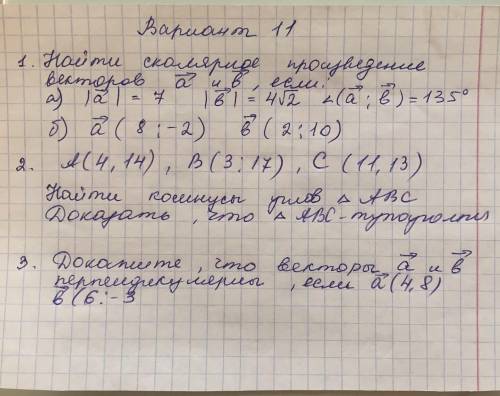 Вариант 11
1. Найти скалярное произведение
векторов a⃗ и b⃗, если:
а) |a⃗| = 7 |b⃗| = 4√2 ∠(a⃗; b⃗) = 135°
б) a⃗ (8; -2) b⃗ (2; 10)
2. A(4, 14), B(3; 17), C (11, 13)
Найти косинусы углов △ ABC
Доказать, что △ ABC - тупоугольн
3. Докажите, что векторы a⃗ и b⃗
перпендикулярны, если a⃗ (4, 8)
b⃗ (6; -3